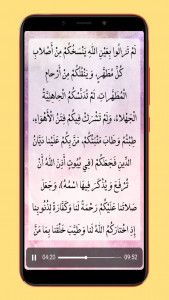 لَمْ تَزالُوا بِعَيْنِ اللَّهِ يَنْسَخُكُمْ مِنْ أَصْلابِ
كُلِّ مُطَهَّرٍ، وَيَنْقُلُكُمْ مِنْ أَرْحامِ
الْمُطَهَّراتِ، لَمْ تُدَنِّسْكُمُ الْجاهِلِيَّةُ
الْجَهْلاءُ، وَلَمْ تَشْرَكْ فِيكُمْ فِتَنُ الْأَهْواءِ،
طِبْتُمْ وَطابَ مَنْبَتُكُمْ، مَنَّ بِكُمْ عَلَيْنا دَيَّانُ
الدِّينِ فَجَعَلَكُمْ (فِي بُيُوتٍ أَذِنَ اللَّهُ أَنْ
تُرْفَعَ وَيُذْكَرَ فِيهَا اسْمُهُ)، وَجَعَلَ
صَلاتَنا عَلَيْكُمْ رَحْمَةً لَنا وَكَفَّارَةً لِذُنُوبِنا
إِذِ اخْتارَكُمُ اللَّهُ لَنا، وَطَيَّبَ خَلْقَنا بِما مَنَّ
04:20 09:52